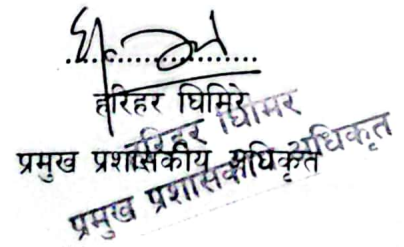 हरिहर घिमिरे
प्रमुख प्रशासकीय अधिकृत
हरिहर घिमिरे
प्रमुख प्रशासकीय अधिकृत